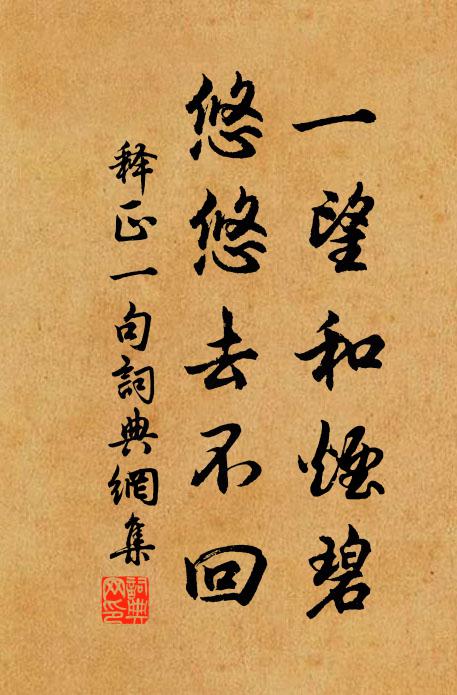 一望和煙碧
悠悠去不回
释正一句詞典網集
詞典
网印